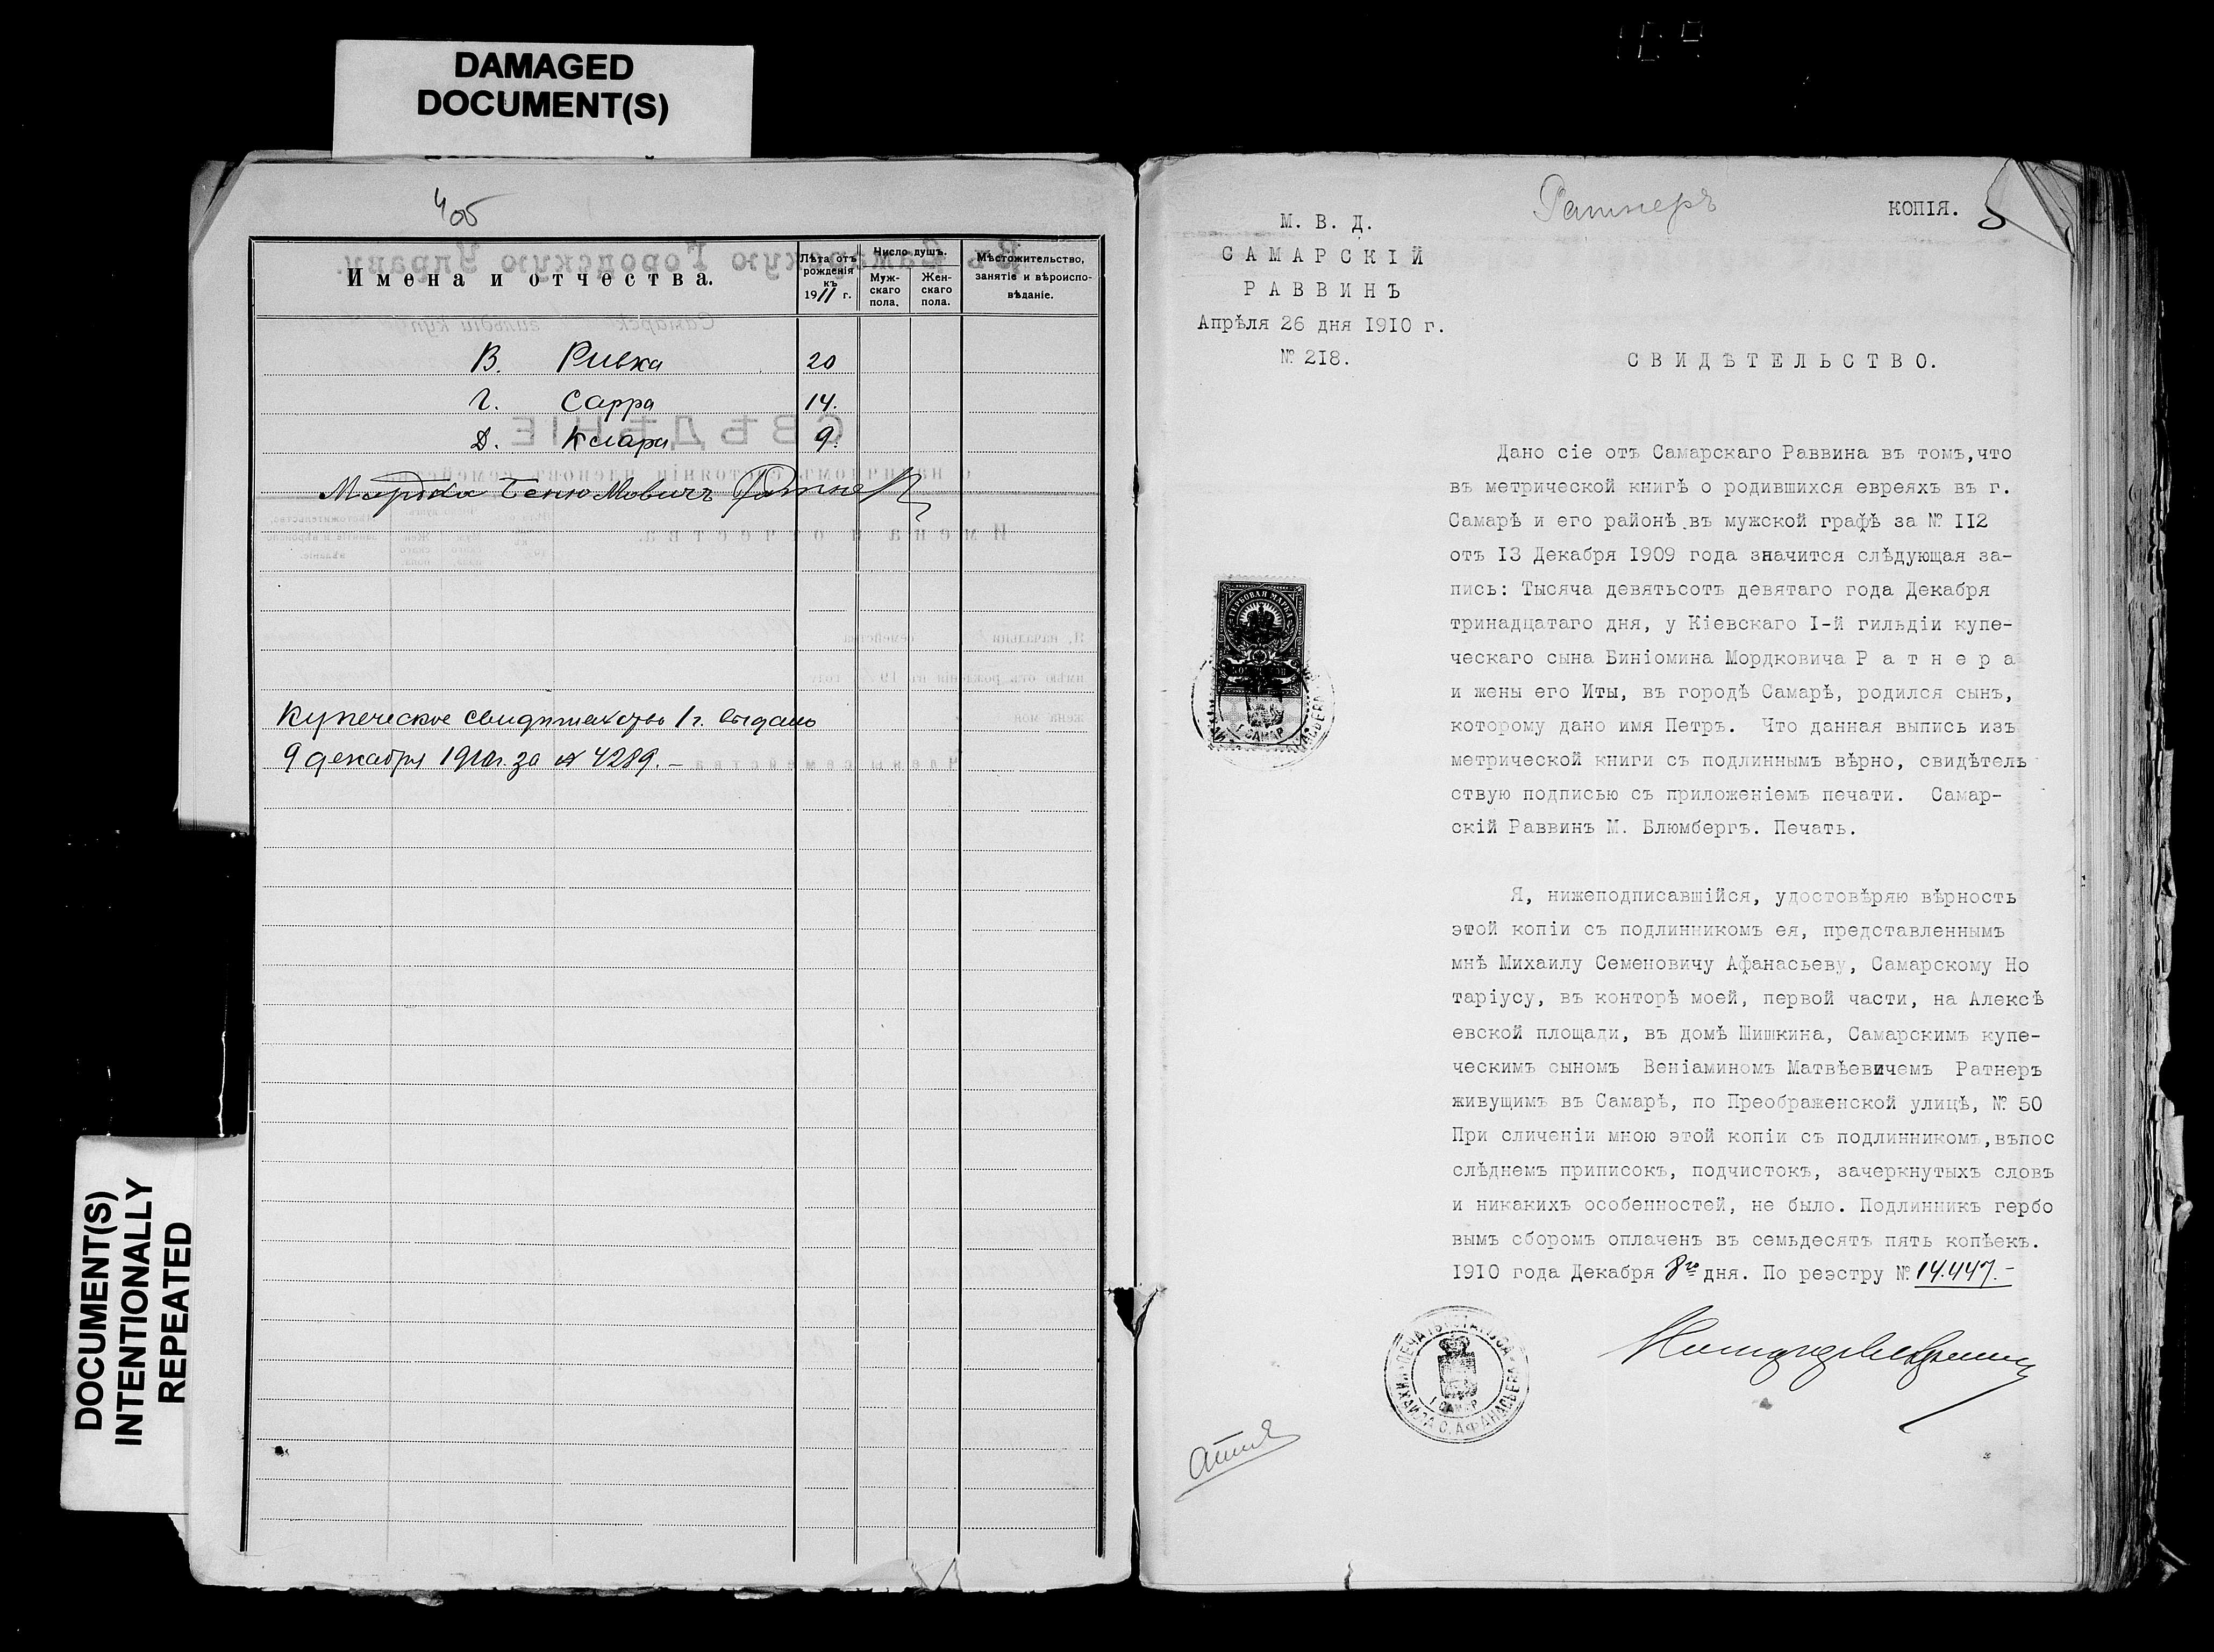 DAMAGED
DOCUMENT(S)
405
Имена и отчества.
Лѣта отъ рожденія къ 1911 г.
Число душъ.
Мужскаго пола.
Женскаго пола.
Мѣстожительство, занятіе и вѣроисповѣданіе.
В. Ривка 20
Г. Сарра 14.
Д. Клара 9.
Мордка Бенюмовичъ Ратнеръ
Купеческое свидѣтельство 1 г. выдано
9 декабря 1910 г. за № 4289. –
DOCUMENT(S)
INTENTIONALLY
REPEATED
Ратнеръ
КОПІЯ.
5
М. В. Д.
САМАРСКІЙ
РАВВИНЪ
Апрѣля 26 дня 1910 г.
№ 218.
СВИДѢТЕЛЬСТВО.
Дано сіе отъ Самарскаго Раввина въ томъ,что
въ метрической книгѣ о родившихся евреяхъ въ г.
Самарѣ и его районѣ въ мужской графѣ за № 112
отъ 13 Декабря 1909 года значится слѣдующая за-
пись: Тысяча девятьсотъ девятаго года Декабря
тринадцатаго дня, у Кіевскаго I-й гильдіи купе-
ческаго сына Биніомина Мордковича Ратнера
и жены его Иты, въ городѣ Самарѣ, родился сынъ,
которому дано имя Петръ. Что данная выпись изъ
метрической книги съ подлиннымъ вѣрно, свидѣтель
ствую подписью съ приложеніемъ печати. Самар-
скій Раввинъ М. Блюмбергъ. Печать.
Я, нижеподписавшійся, удостовѣряю вѣрность
этой копіи съ подлинникомъ ея, представленнымъ
мнѣ Михаилу Семеновичу Афанасьеву, Самарскому Но
таріусу, въ конторѣ моей, первой части, на Алексѣ
евской площади, въ домѣ Шишкина, Самарскимъ купе-
ческимъ сыномъ Веніаминомъ Матвѣевичемъ Ратнеръ
живущимъ въ Самарѣ, по Преображенской улицѣ, № 50
При сличеніи мною этой копіи съ подлинникомъ,въпос
слѣднемъ приписокъ, подчистокъ, зачеркнутыхъ словъ
и никакихъ особенностей, не было. Подлинникъ гербо
вымъ сборомъ оплаченъ въ семьдесятъ пять копѣекъ.
1910 года Декабря 8го дня. По реэстру № 14.447.–
ГЕРБОВАЯ МАРКА
Г. САМАР.
ПЕЧАТЬ НОТАРІУСА МИХАИЛА С. АФАНАСЬЕВА
Г. САМАР.